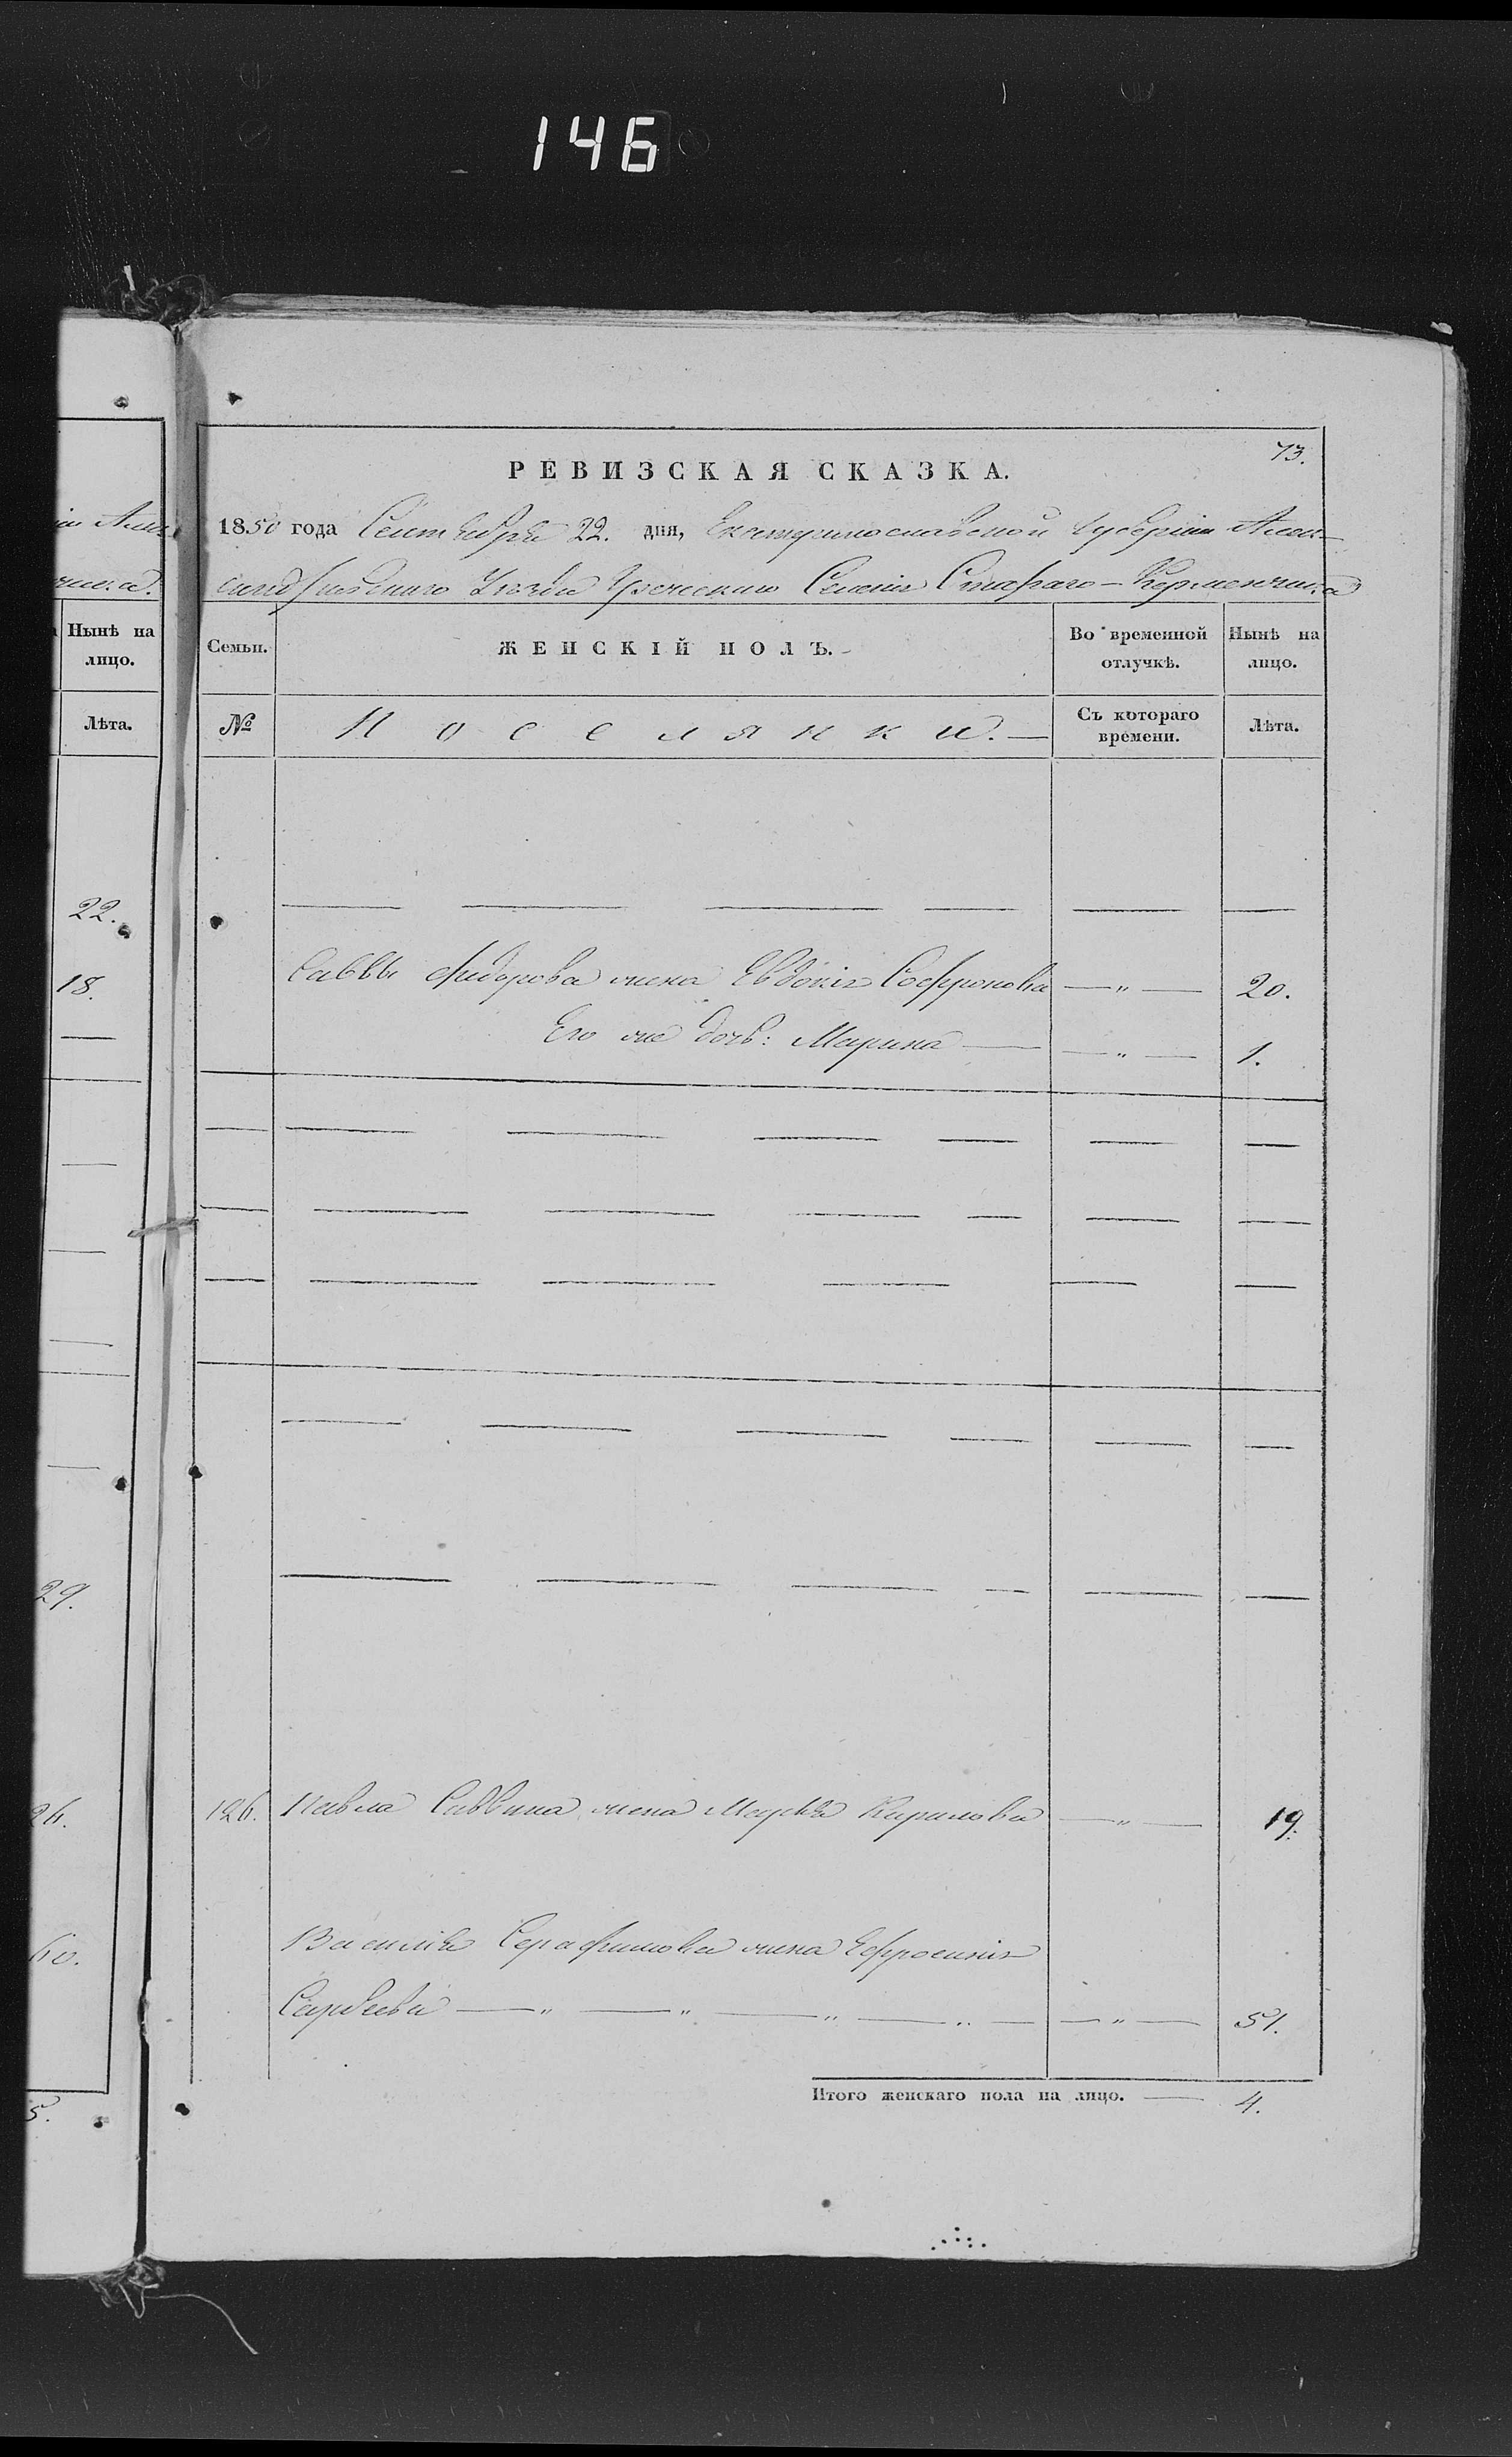 146
ія Алек
чика.
Нынѣ на
лицо.
Лѣта.
22.
18.
29.
26.
60.
5.
73.
РЕВИЗСКАЯ СКАЗКА.
1850 года Сентября 22. дня, Екатеринославской Губерніи Алек-
сандровскаго Уѣзда Греческаго Селенія Стараго-Керменчика
Семьи. ЖЕНСКІЙ ПОЛЪ. Во временной отлучкѣ. Нынѣ на лицо.
№ Поселянки. Съ котораго времени. Лѣта.
Саввы Фидорова жена Евдокія Софронова — " — 20.
Его же дочь: Марина — — " — 1.
126. Павла Саввина жена Марѳа Кирилова — " — 19.
Василія Серафимова жена Ефросинія
Савѣева — " — " — " — " — — " — 51.
Итого женскаго пола на лицо. — 4.